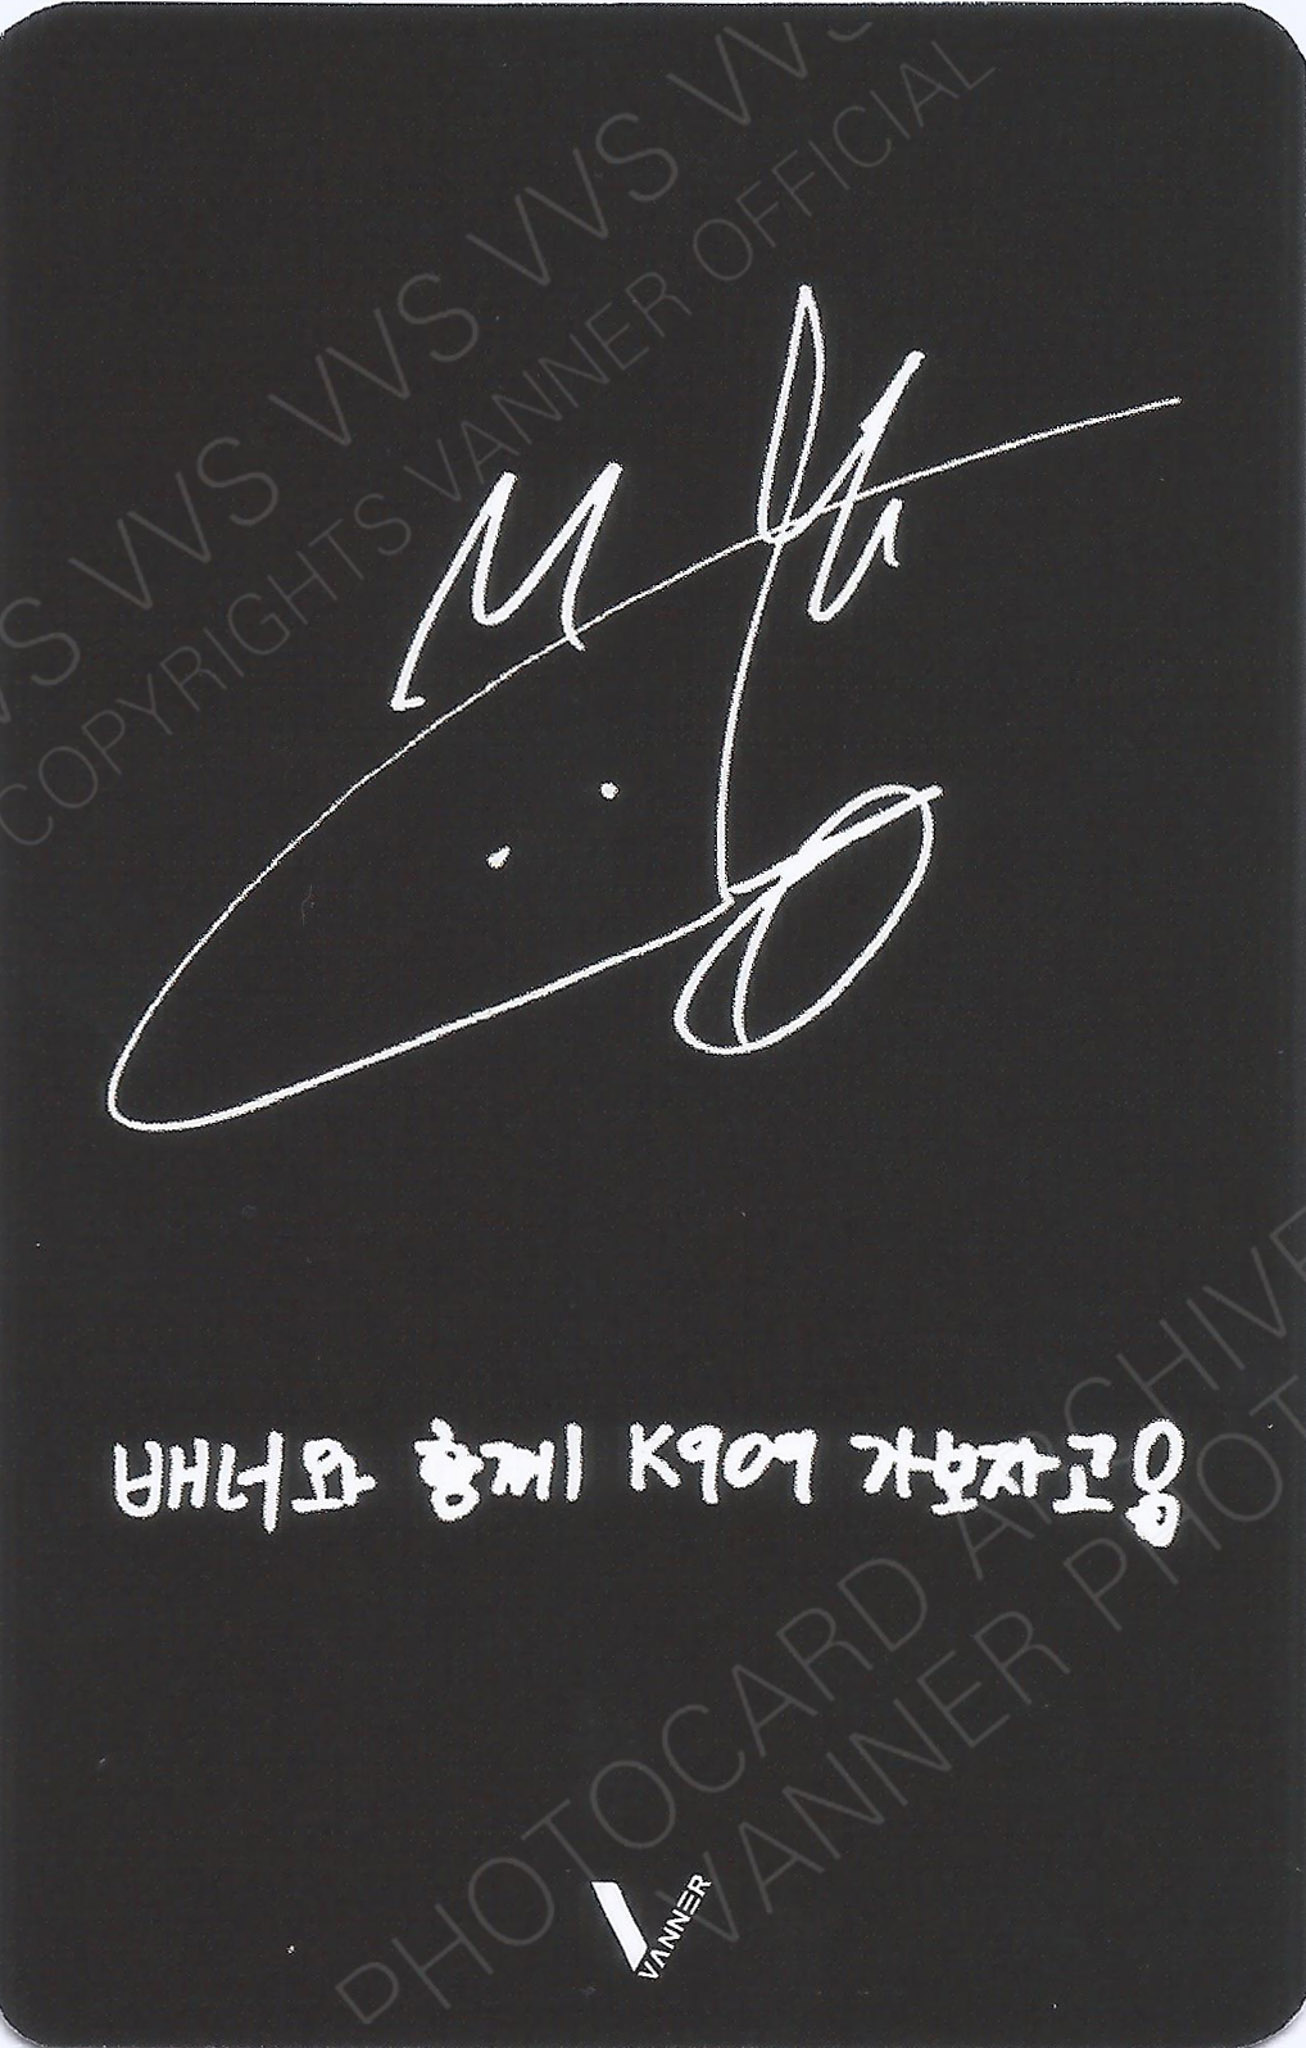 VVS VVS VVS VVS VVS
COPYRIGHTS VANNER OFFICIAL
배너와 함께 K909 가보자고용
PHOTOCARD ARCHIVE
VANNER PHOT
VANNER